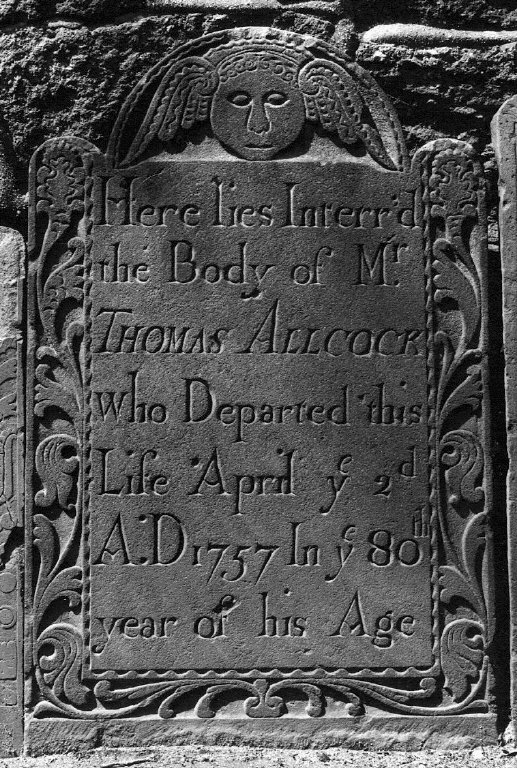 Here lies Interr'd
the Body of Mr.
THOMAS ALLCOCK
who Departed this
Life April ye 2d
A.D 1757 In ye 80th
year of his Age